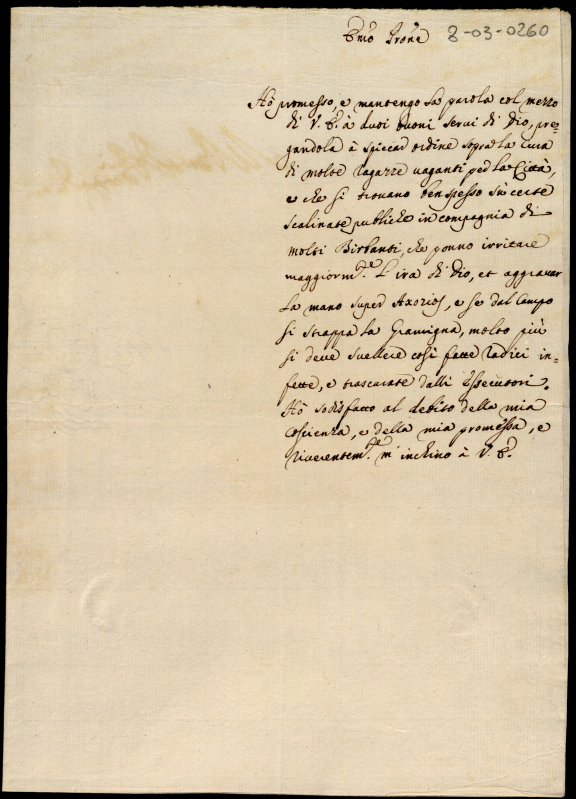 Emo Prōne 8-03-0260
Hò promesso, e mantengo la parola col mezzo
di V. E. à duoi buoni serui di Dio, pre=
gandola à spiccar ordine sopra la cura
di molte ragazze uaganti per la Città,
e che si trouano benspesso sù certe
scalinate publiche in compagnia di
molti Birbanti, che ponno irritare
maggiorm.te l'ira di Dio, et aggrauar
la mano super Azotios, e se dal Campo
si strappa la Gramigna, molto più
si deve suellere così fatte radici in=
fette, e trascurate dalli Essecutori.
Hò sodisfatto al debito della mia
coscienza, e della mia promessa, e
riuerentem.te m'inchino à V. E.